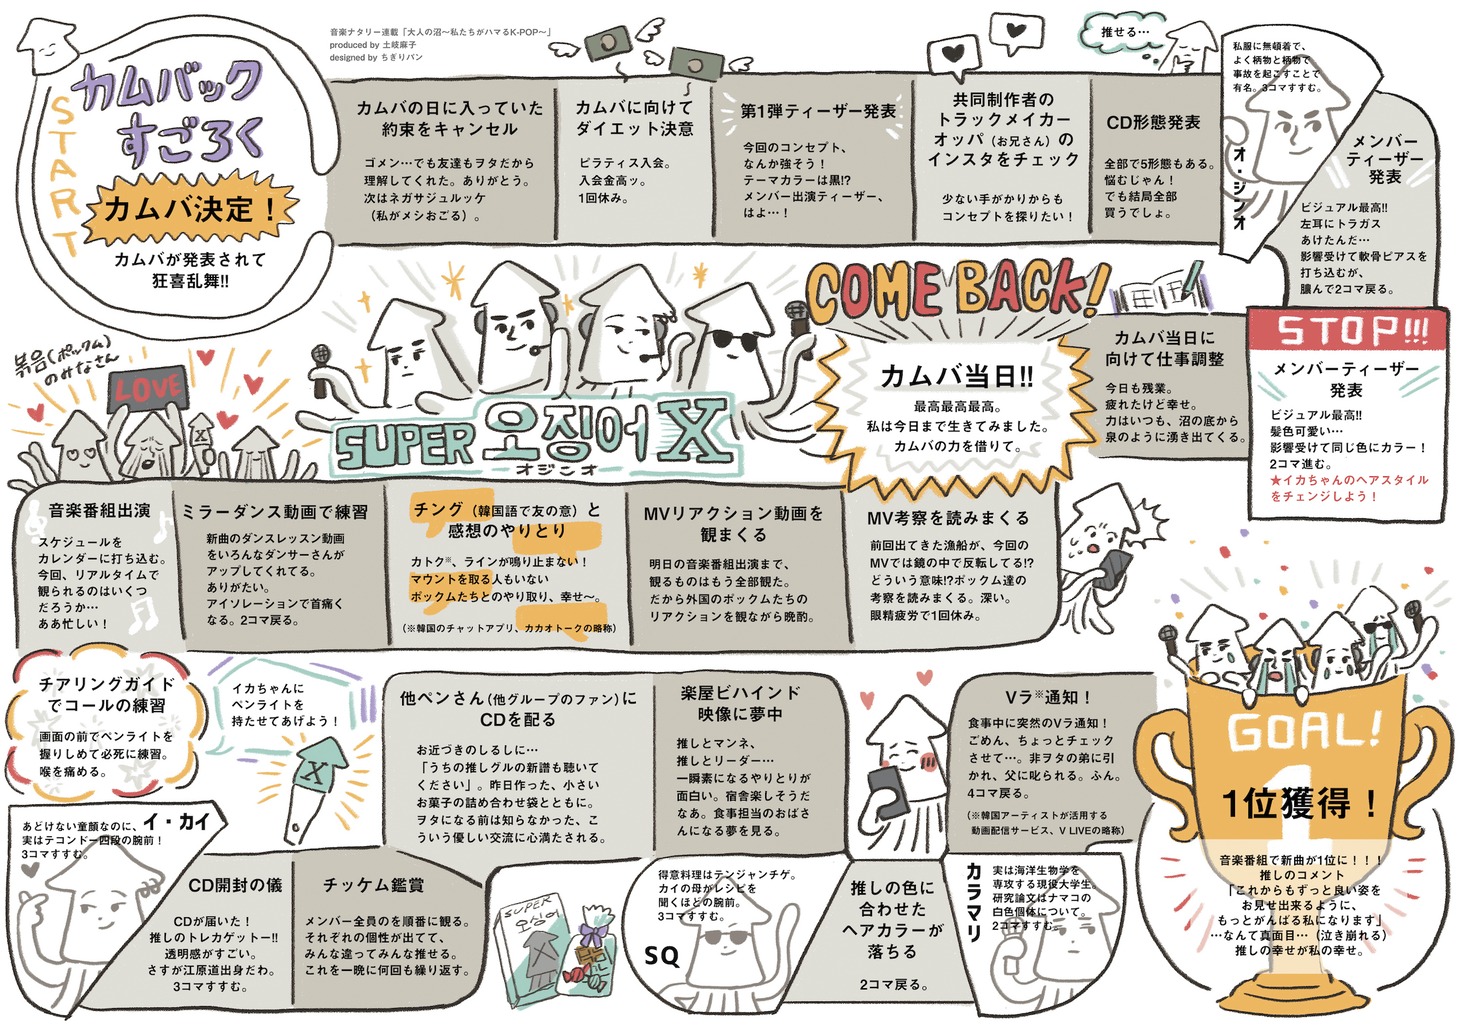 音楽ナタリー連載「大人の沼〜私たちがハマるK-POP〜」
produced by 土岐麻子
designed by ちぎりパン
START
カムバック
すごろく
カムバ決定！
カムバが発表されて
狂喜乱舞!!
カムバの日に入っていた
約束をキャンセル
ゴメン…でも友達もヲタだから
理解してくれた。ありがとう。
次はネガサジュルッケ
（私がメシおごる）。
カムバに向けて
ダイエット決意
ピラティス入会。
入会金高ッ。
1回休み。
第1弾ティーザー発表
今回のコンセプト、
なんか強そう！
テーマカラーは黒!?
メンバー出演ティーザー、
はよ…！
共同制作者の
トラックメイカー
オッパ（お兄さん）の
インスタをチェック
少ない手がかりからも
コンセプトを探りたい！
推せる…
CD形態発表
全部で5形態もある。
悩むじゃん！
でも結局全部
買うでしょ。
私服に無頓着で、
よく柄物と柄物で
事故を起こすことで
有名。3コマすすむ。
オ・ジンオ
メンバー
ティーザー
発表
ビジュアル最高!!
左耳にトラガス
あけたんだ…
影響受けて軟骨ピアスを
打ち込むが、
膿んで2コマ戻る。
STOP!!!
メンバーティーザー
発表
ビジュアル最高!!
髪色可愛い…
影響受けて同じ色にカラー！
2コマ進む。
★イカちゃんのヘアスタイル
をチェンジしよう！
カムバ当日に
向けて仕事調整
今日も残業。
疲れたけど幸せ。
力はいつも、沼の底から
泉のように湧き出てくる。
COME BACK!
カムバ当日!!
最高最高最高。
私は今日まで生きてみました。
カムバの力を借りて。
SUPER 오징어 X
オジンオ
뽂음(ポックム)
のみなさん
LOVE
X
MV考察を読みまくる
前回出てきた漁船が、今回の
MVでは鏡の中で反転してる!?
どういう意味!?ポックム達の
考察を読みまくる。深い。
眼精疲労で1回休み。
MVリアクション動画を
観まくる
明日の音楽番組出演まで、
観るものはもう全部観た。
だから外国のポックムたちの
リアクションを観ながら晩酌。
チング（韓国語で友の意）と
感想のやりとり
カトク※、ラインが鳴り止まない！
マウントを取る人もいない
ポックムたちとのやり取り、幸せ〜。
（※韓国のチャットアプリ、カカオトークの略称）
ミラーダンス動画で練習
新曲のダンスレッスン動画
をいろんなダンサーさんが
アップしてくれてる。
ありがたい。
アイソレーションで首痛く
なる。2コマ戻る。
音楽番組出演
スケジュールを
カレンダーに打ち込む。
今回、リアルタイムで
観られるのはいくつ
だろうか…
ああ忙しい！
チアリングガイド
でコールの練習
画面の前でペンライトを
握りしめて必死に練習。
喉を痛める。
イカちゃんに
ペンライトを
持たせてあげよう！
X
あどけない童顔なのに、
実はテコンドー四段の腕前！
3コマすすむ。
イ・カイ
CD開封の儀
CDが届いた！
推しのトレカゲットー!!
透明感がすごい。
さすが江原道出身だわ。
3コマすすむ。
チッケム鑑賞
メンバー全員のを順番に観る。
それぞれの個性が出てて、
みんな違ってみんな推せる。
これを一晩に何回も繰り返す。
SUPER
오징어
X
他ペンさん（他グループのファン）に
CDを配る
お近づきのしるしに…
「うちの推しグルの新譜も聴いて
ください」。昨日作った、小さい
お菓子の詰め合わせ袋とともに。
ヲタになる前は知らなかった、こ
ういう優しい交流に心満たされる。
楽屋ビハインド
映像に夢中
推しとマンネ、
推しとリーダー…
一瞬素になるやりとりが
面白い。宿舎楽しそうだ
なあ。食事担当のおばさ
んになる夢を見る。
得意料理はテンジャンチゲ。
カイの母がレシピを
聞くほどの腕前。
3コマすすむ。
SQ
推しの色に
合わせた
ヘアカラーが
落ちる
2コマ戻る。
カラマリ
実は海洋生物学を
専攻する現役大学生。
研究論文はナマコの
白色個体について。
2コマすすむ。
Vラ※通知！
食事中に突然のVラ通知！
ごめん、ちょっとチェック
させて…。非ヲタの弟に引
かれ、父に叱られる。ふん。
4コマ戻る。
（※韓国アーティストが活用する
動画配信サービス、V LIVEの略称）
GOAL!
1
1位獲得！
音楽番組で新曲が1位に！！！
推しのコメント
「これからもずっと良い姿を
お見せ出来るように、
もっとがんばる私になります」
…なんて真面目…（泣き崩れる）
推しの幸せが私の幸せ。